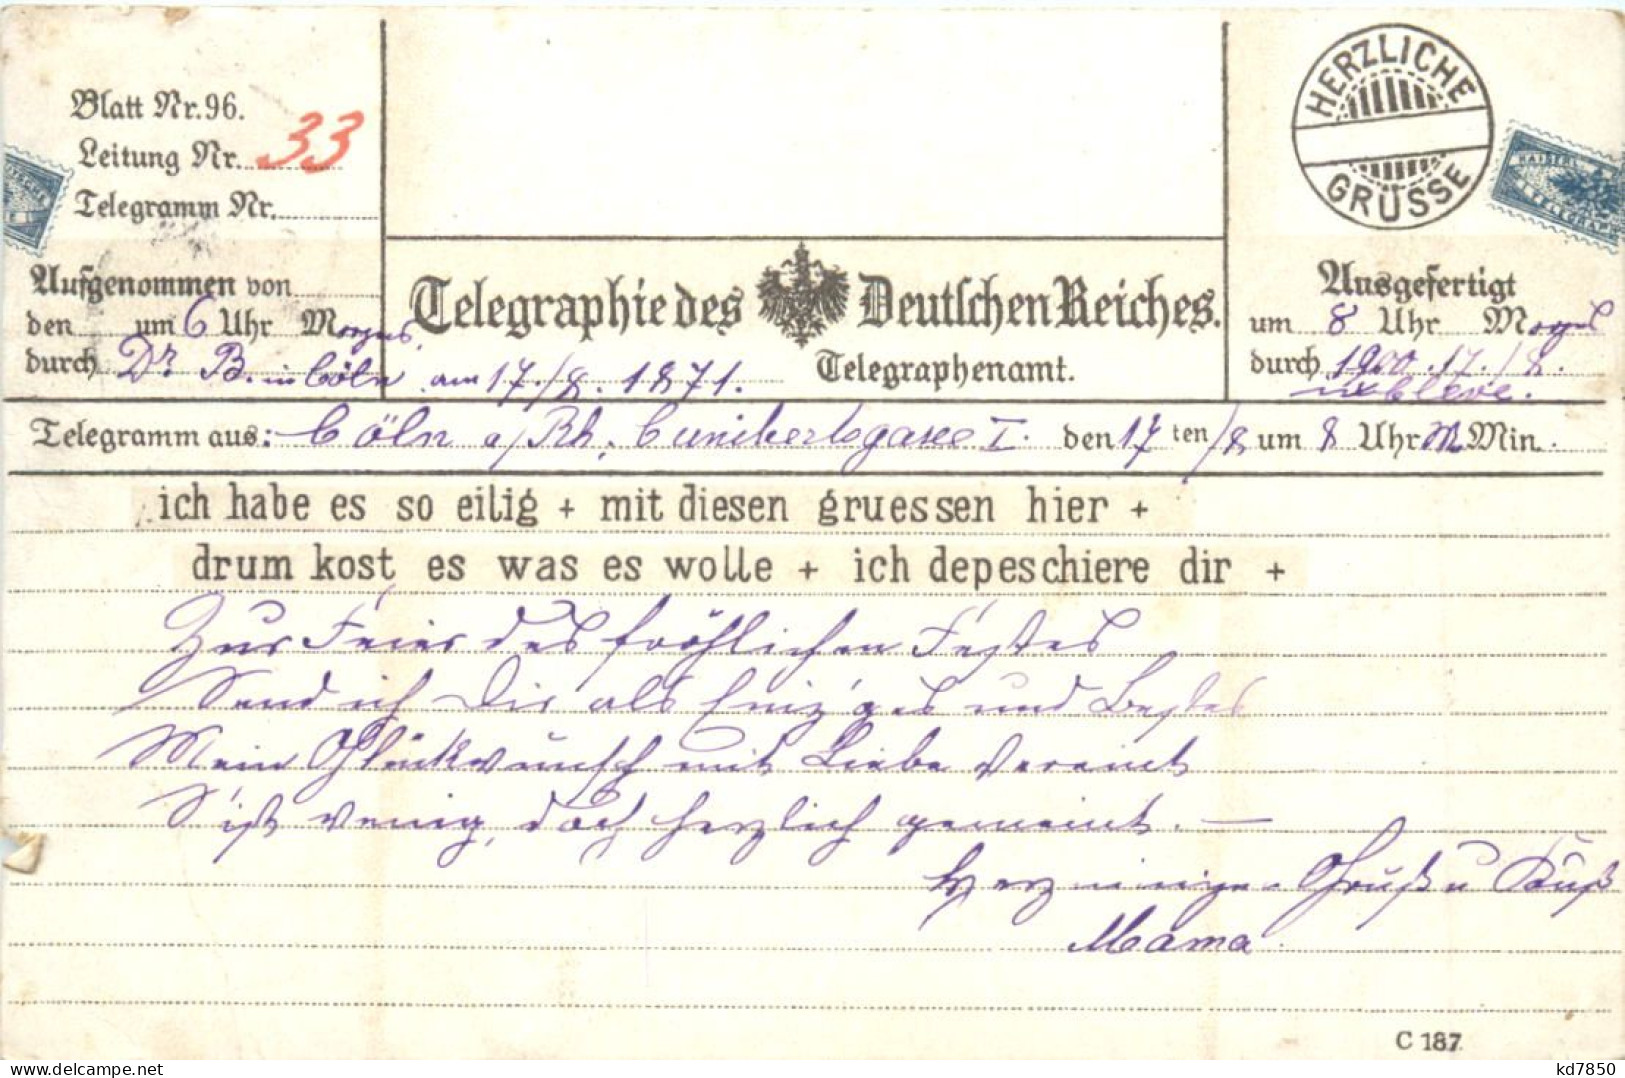 Blatt Nr. 96.
Leitung Nr. 33
Telegramm Nr.
HERZLICHE GRÜSSE
KAISERL.
Aufgenommen von
den um 6 Uhr Morgens
durch Dr B. in Cöln am 17./8. 1871.
Telegraphie des Deutschen Reiches.
Telegraphenamt.
Ausgefertigt
um 8 Uhr Morgs
durch 1900. 17./8.
in Cleve.
Telegramm aus: Cöln a/Rh. Cunibertsgasse I. den 17ten/8 um 8 Uhr M Min.
ich habe es so eilig + mit diesen gruessen hier +
drum kost es was es wolle + ich depeschiere dir +
Zur Feier des fröhlichen Festes
Send ich Dir als Einz'ges und Bestes
Mein Glückwunsch mit Liebe vereint
S'ist wenig, doch herzlich gemeint. —
Herzinnigen Gruß u Kuß
Mama.
C 187
kd7850